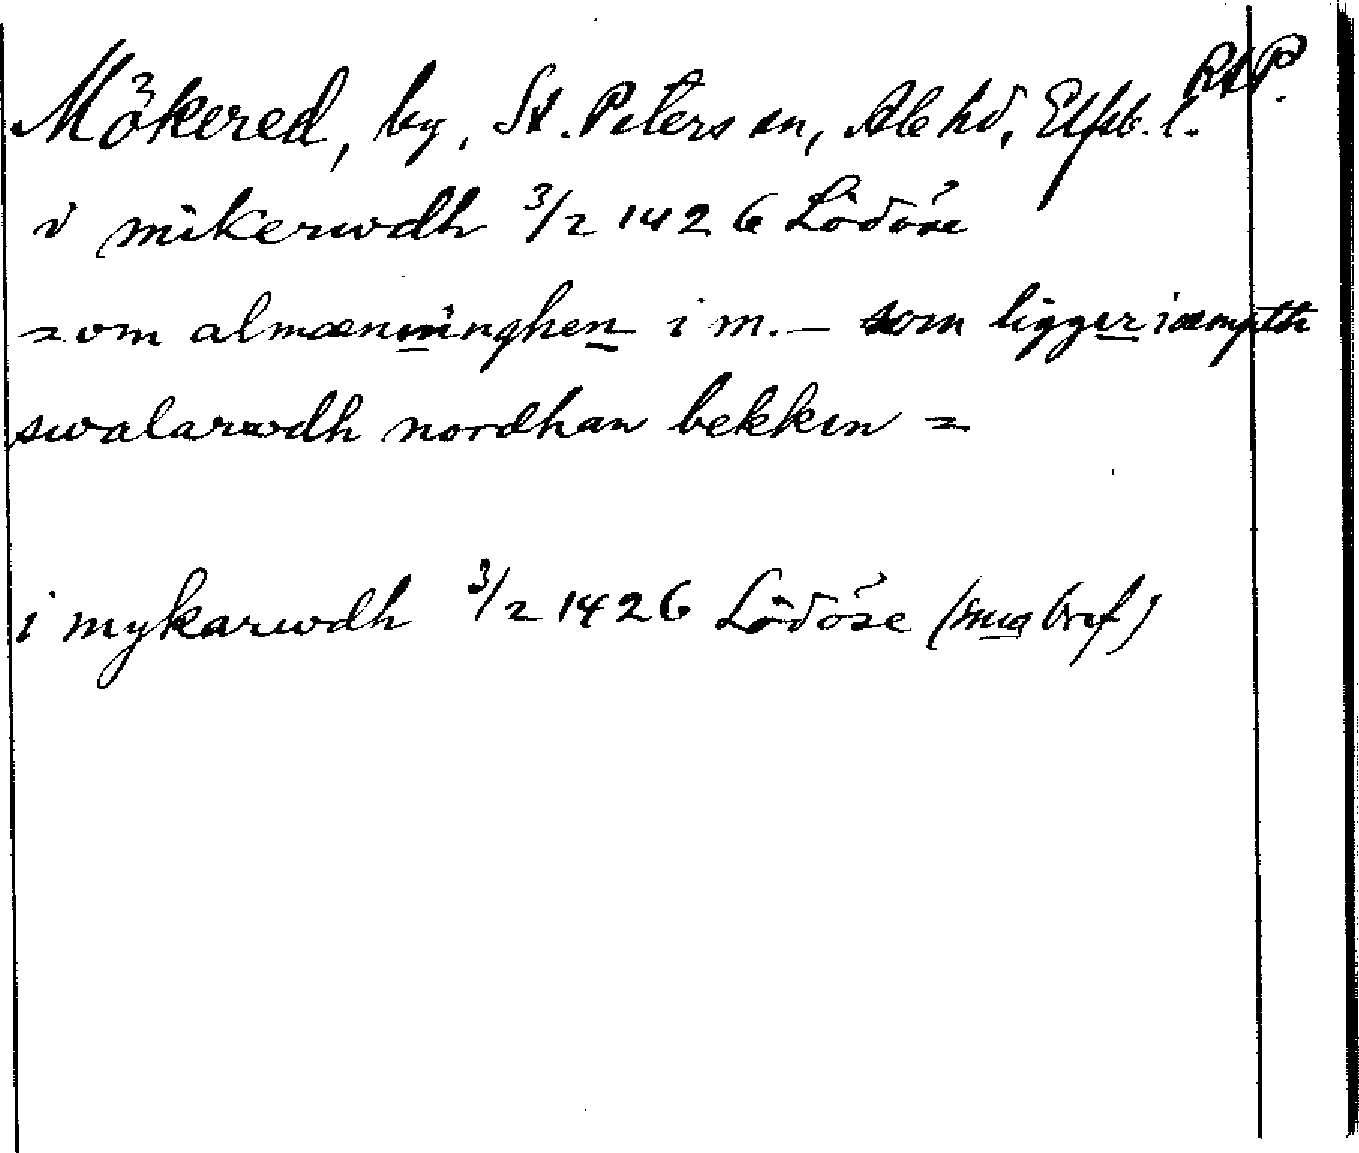 RAP.
Mökered, by, St. Peters sn, Ale hd, Elfsb. l.
i mikerwdh 3/2 1426 Lödöse
= om almænninghen i m. – som ligger iæmpth
swalarwdh nordhan bekken =
i mykarwdh 3/2 1426 Lödöse ( bref)